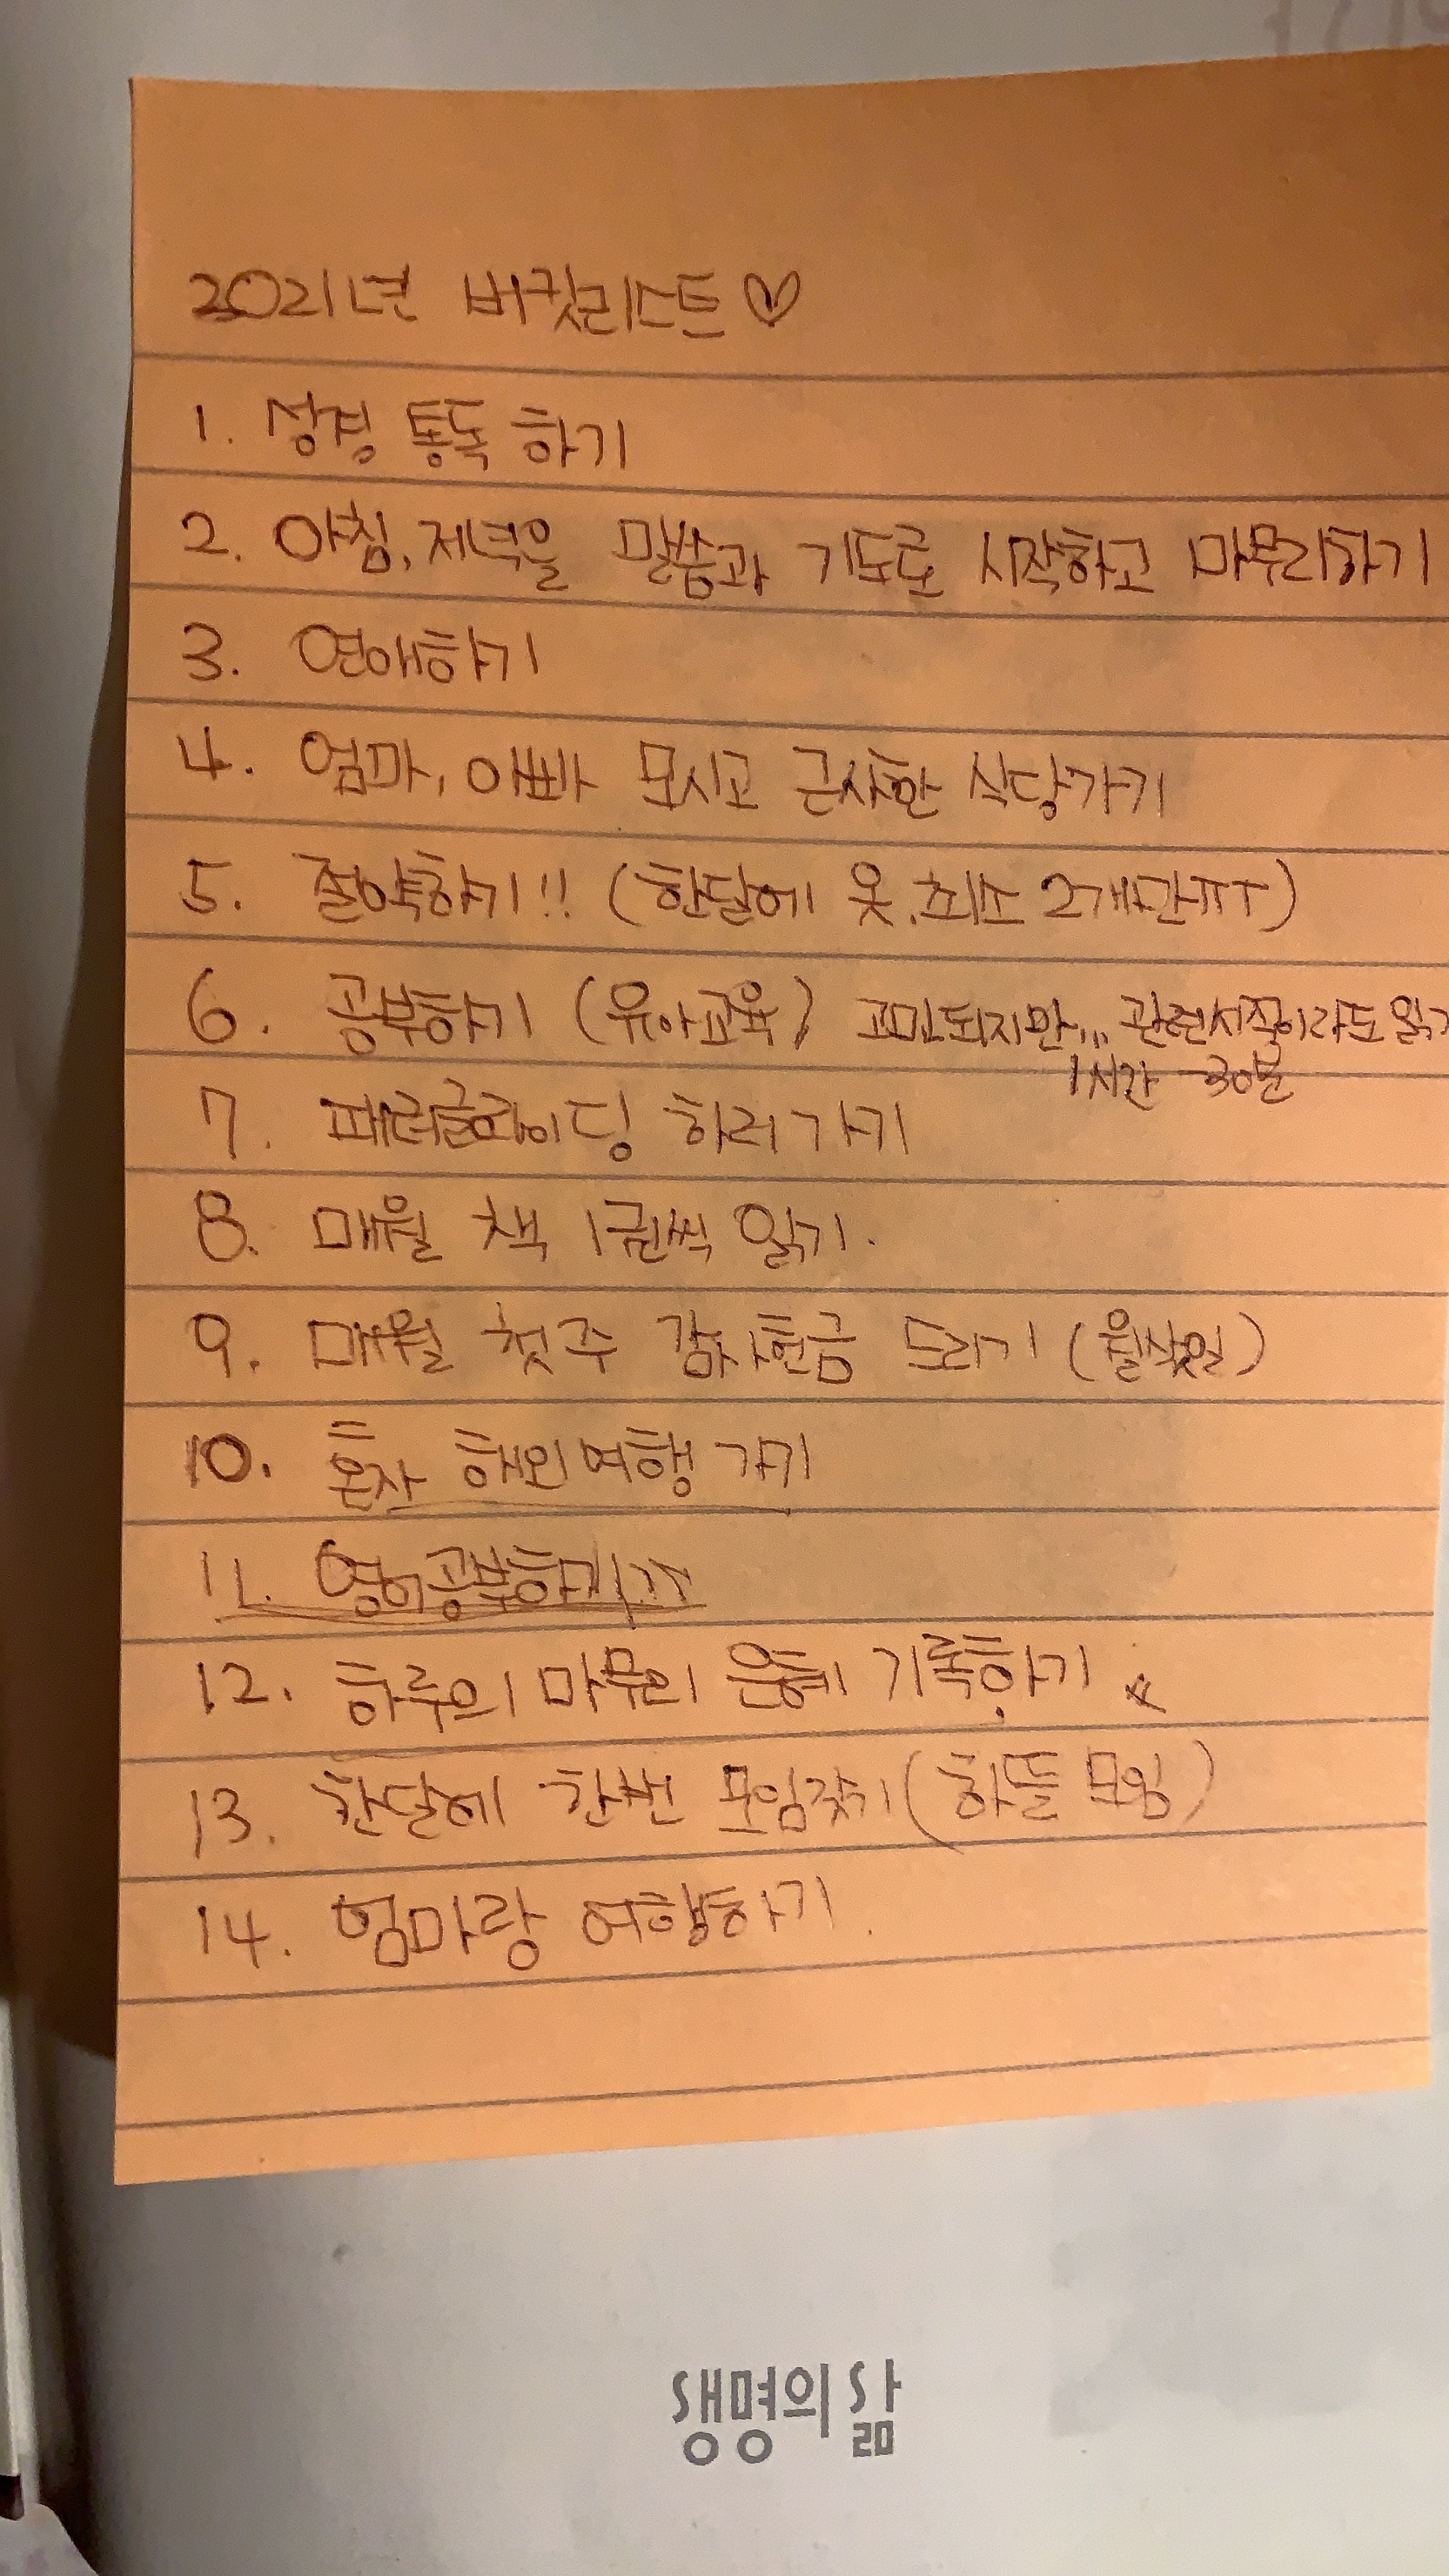 2021년 버킷리스트♡
1. 성경 통독 하기
2. 아침, 저녁을 말씀과 기도로 시작하고 마무리하기
3. 연애하기
4. 엄마, 아빠 모시고 근사한 식당가기
5. 절약하기!! (한달에 옷.최소 2개만ㅠㅠ)
6. 공부하기 (유아교육) 고민되지만... 관련서적이라도 읽기
1시간 30분
7. 패러글라이딩 하러가기
8. 매월 책 1권씩 읽기.
9. 매월 첫주 감사헌금 드리기 (월삭일)
10. 혼자 해외여행 가기
11. 영어공부하기ㅠㅠ
12. 하루의 마무리 은혜 기록하기
13. 한달에 한번 모임갖기 (하뜰 모임)
14. 엄마랑 여행하기.
생명의 삶